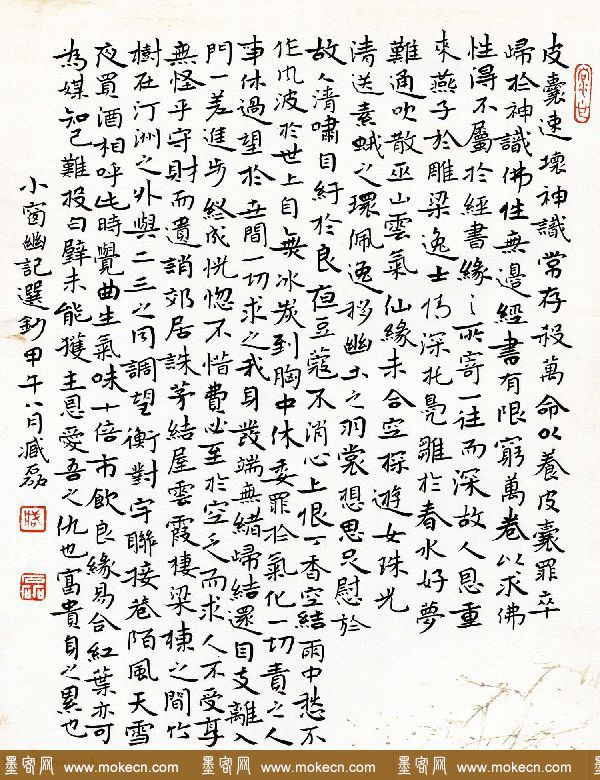 皮囊速壞神識常存殺萬命以養皮囊罪卒
歸於神識佛性無邊經書有限窮萬卷以求佛
性得不屬於經書緣之所寄一往而深故人恩重
來燕子於雕梁逸士情深托鳧雛於春水好夢
難通吹散巫山雲氣仙緣未合空探遊女珠光
清送素蛾之環佩逸移幽士之羽裳想思足慰於
故人清嘯自紆於良夜豆蔻不消心上恨丁香空結雨中愁不
作風波於世上自無冰炭到胸中休委罪於氣化一切責之人
事休過望於世間一切求之我身發端無緒歸結還自支離入
門一差進步終成恍惚不惜費必至於空乏而求人不受享
無怪乎守財而遺誚郊居誅茅結屋雲霞棲梁棟之間竹
樹在汀洲之外與二三之同調望衡對宇聯接巷陌風天雪
夜買酒相呼此時覺曲生氣味十倍市飲良緣易合紅葉亦可
為媒知己難投白璧未能獲主恩愛吾之仇也富貴身之累也
小窗幽記選鈔甲午八月臧磊
墨客网 www.mokecn.com 墨客网 www.mokecn.com 墨客网 www.mokecn.com